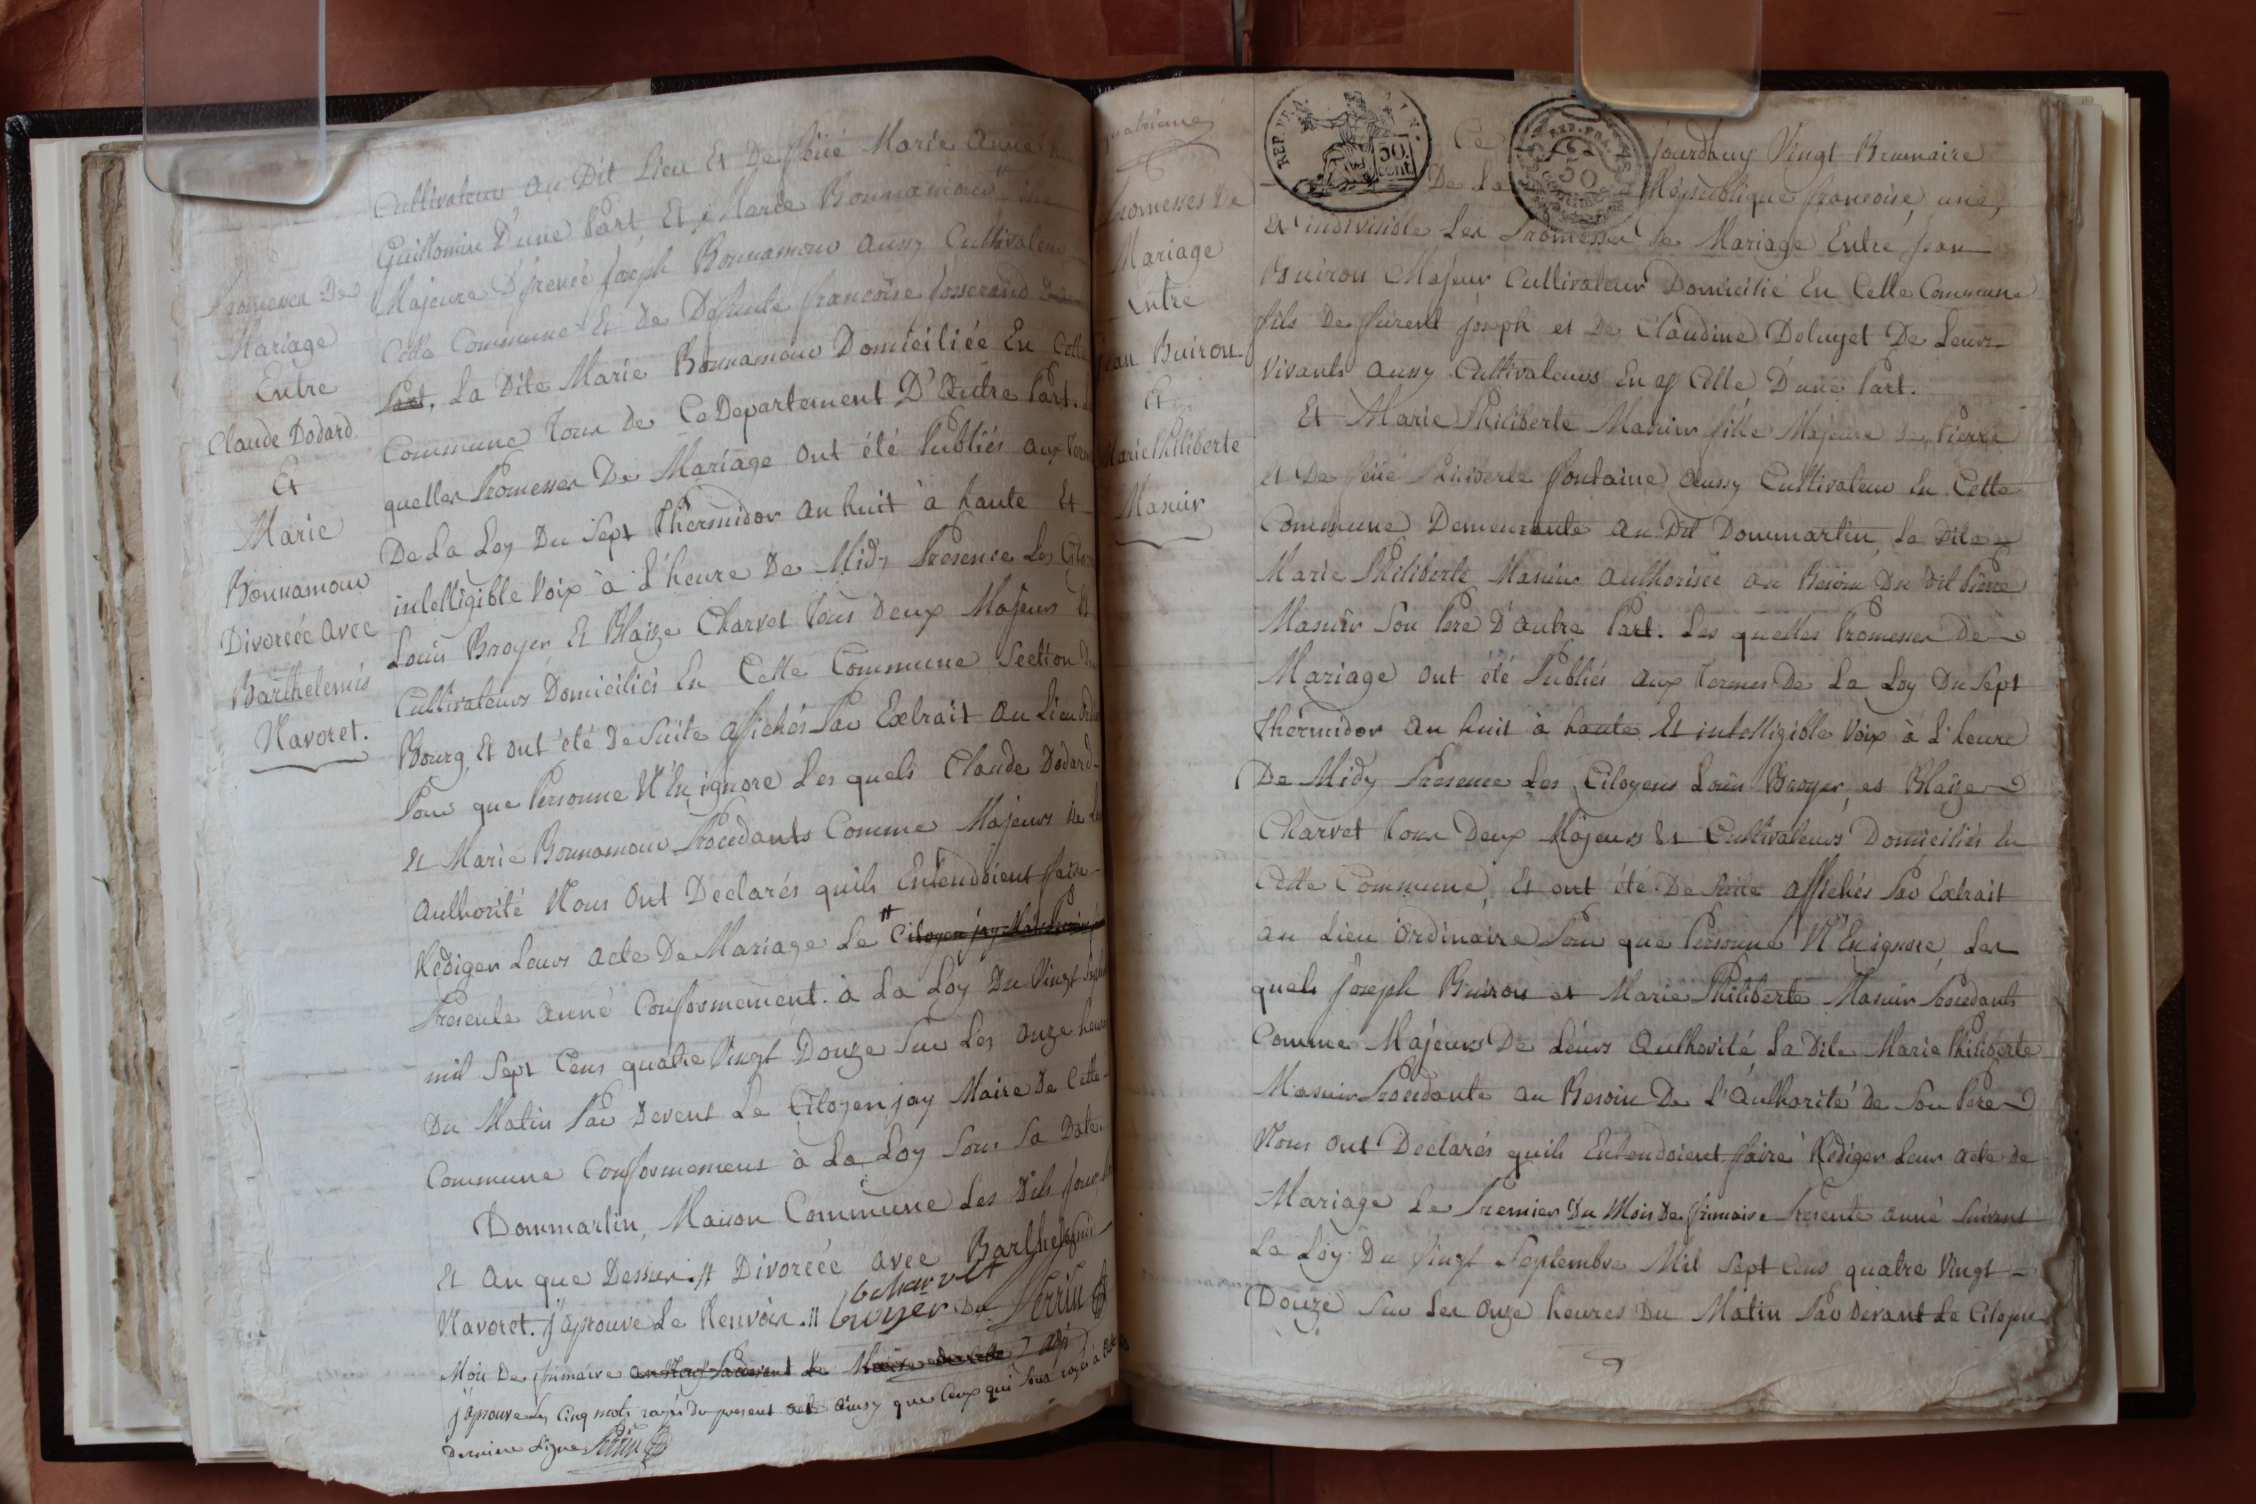 Promesses De
Mariage
Entre
Claude Dodard
Et
Marie
Bonnamour
Divorcée avec
Barthelemis
Navoret.
Cultivateur au Dit Lieu Et De feüe Marie Anne
Guillomin D'une Part, Et Marie Bonnamour fille
Majeure D' Joseph Bonnamour aussy Cultivateur
Cette Commune Et De Defunte francoise Josserand
Part, La Dite Marie Bonnamour Domiciliée En Cette
Commune tous De Ce Departement D'Autre Part.
quelles Promesses De Mariage ont été Publiés aux
De La Loy Du Sept Thermidor an huit à haute Et
intelligible Voix à L'heure De Midy Presence Les
Louis Broyer Et Blaize Charvet tous Deux Majeurs Et
Cultivateurs Domiciliés En Cette Commune Section Du
Bourg, Et ont été De Suite affichés Par Extrait au Lieu
Pour que Personne N'En ignore Les quels Claude Dodard
Et Marie Bonnamour Procedants Comme Majeurs De
Authorité Nous Ont Declarés quils Entendoient faire
Rediger Leurs acte De Mariage Le Citoyen jay
Presente anné Conformement à La Loy Du Vingt
mil Sept Cens quatre Vingt Douze Sur Les onze heures
Du Matin Par Devent Le Citoyen jay Maire De Cette
Commune Conformement à La Loy Sous Sa Date.
Dommartin, Maison Commune Les Dits jour
Et an que Dessus. Divorcée avec Barthelemis
Navoret. J'aprouve Le Renvoir. Charvet
broyer Du Perrin
Mois De frimaire
j'aprouve Les Cinq mots rayés du present acte ainsy que Ceux qui Sont rayés à
Derniere Ligne Perrin
Promesses De
Mariage
Entre
Jean Buiron
Et
Marie Philiberte
Masuir
REP. FRA.
50.
cent.
REP. FRA.
50
Ce jourdhuy Vingt Brumaire
De La Republique francoise, une,
Et indivisible Les Promesses De Mariage Entre Jean
Buiron Majeur Cultivateur Domicilié En Cette Commune
fils De Joseph et De Claudine Deluyet De Leurs
Vivants aussy Cultivateurs En Celle D'une Part.
Et Marie Philiberte Masuir fille Majeure De Pierre
et De feüe Philiberte fontaine aussy Cultivateur En Cette
Commune Demeurante au Dit Dommartin, La Dite
Marie Philiberte Masuir authorisée au Besoin Du Dit Pierre
Masuir Son Pere D'autre Part. Les quelles Promesses De
Mariage ont été Publiés aux termes De La Loy Du Sept
thermidor an huit à haute Et intelligible Voix à L'heure
De Midy Presence Les Citoyens Louis Broyer, et Blaize
Charvet tous Deux Majeurs Et Cultivateurs Domiciliés En
Cette Commune, Et ont été De Suite affichés Par Extrait
au Lieu ordinaire Pour que Personne N'En ignore, Les
quels Joseph Buiron et Marie Philiberte Masuir Procedants
Comme Majeurs De Leurs Authorité La Dite Marie Philiberte
Masuir Procedante au Besoin De L'Authorité de Son Pere
Nous ont Declarés quils Entendoient faire Rediger Leur acte de
Mariage Le Premier Du Mois De frimaire Presente anné Suivant
La Loy Du Vingt Septembre Mil Sept Cens quatre Vingt
Douze Sur Les Onze heures Du Matin Par Devant Le Citoyen